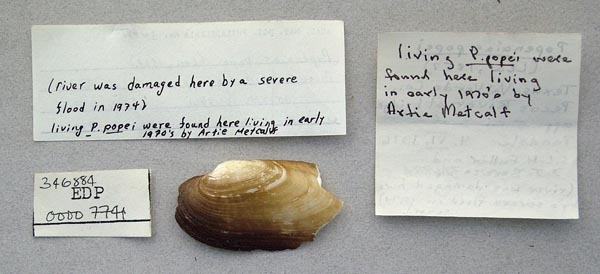 (river was damaged here by a severe
flood in 1974)
living P. popei were found here living in early
1970's by Artie Metcalf
living P. popei were
found here living
in early 1970's by
Artie Metcalf
346884
EDP
0000 7741